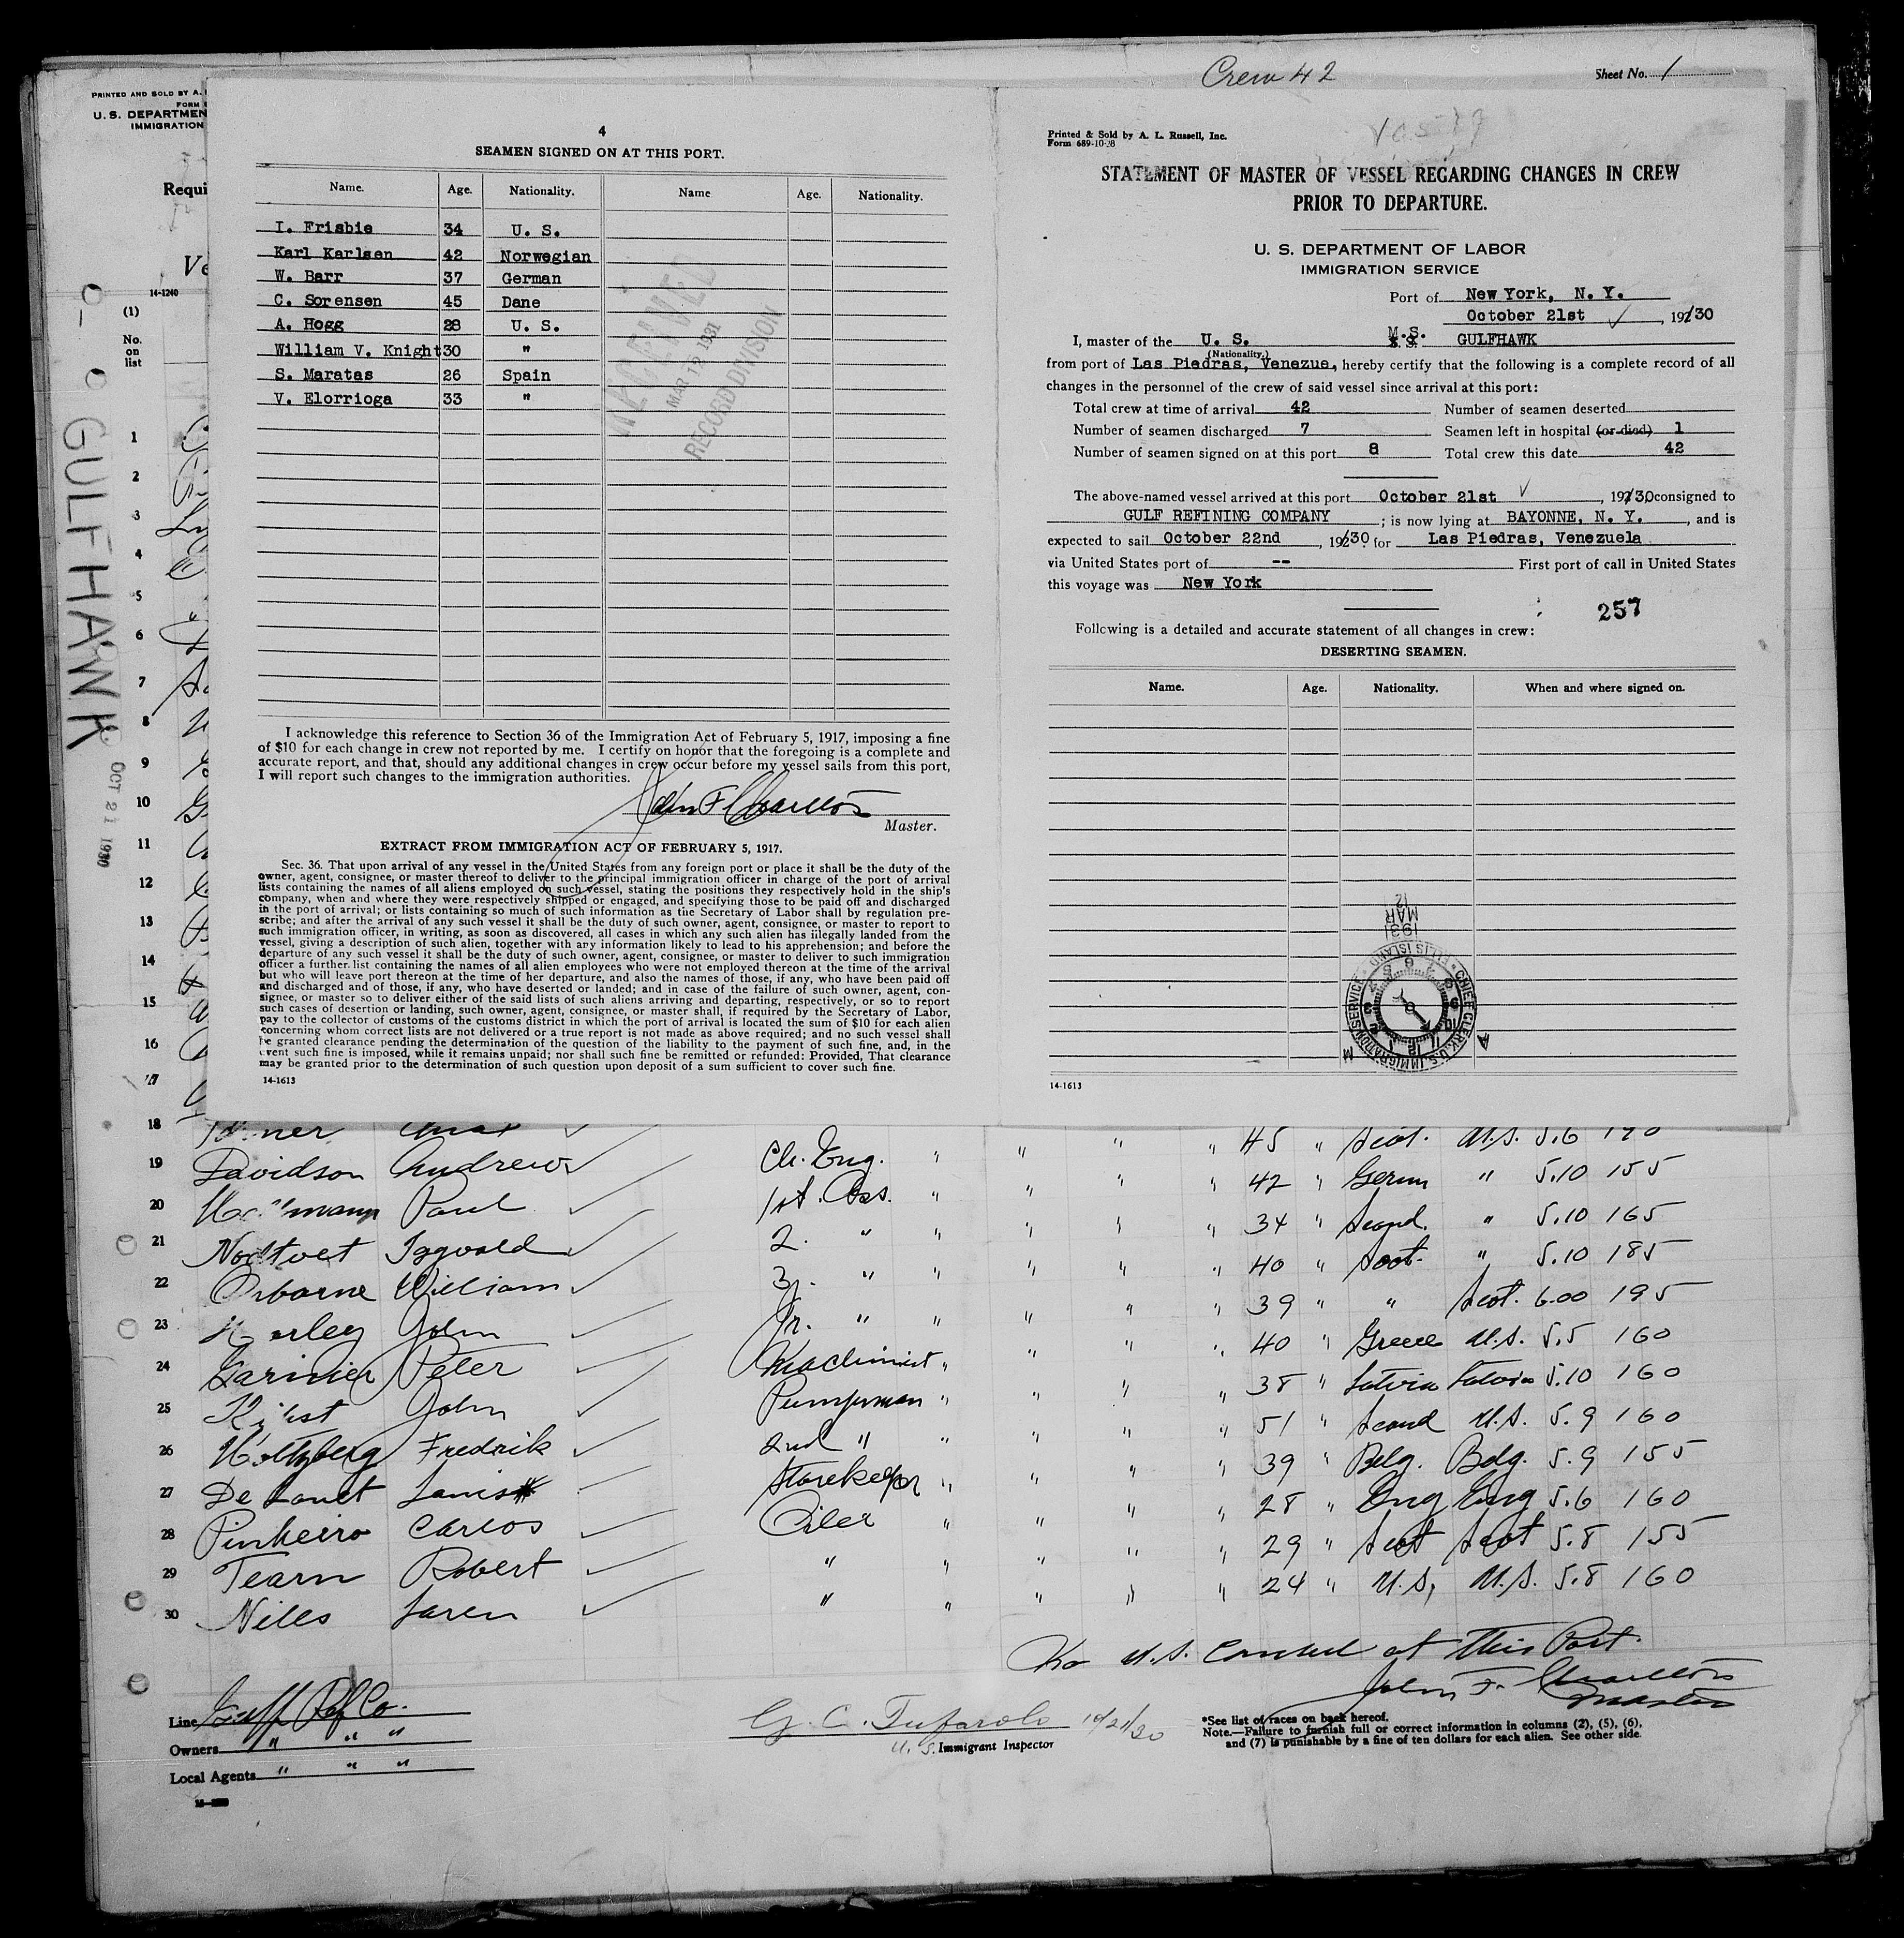 Crew 42
Sheet No. 1
PRINTED AND SOLD BY A.
FORM
U. S. DEPARTMEN
IMMIGRATION
Requi
Ve
14-1240
(1)
No.
on
list
GULFHAWK
OCT 21 1930
4
SEAMEN SIGNED ON AT THIS PORT.
Name. Age. Nationality. Name Age. Nationality.
I. Frisbie 34 U. S.
Karl Karlsen 42 Norwegian
W. Barr 37 German
C. Sorensen 45 Dane
A. Hogg 28 U. S.
William V. Knight 30 "
S. Maratas 26 Spain
V. Elorrioga 33 "
RECEIVED
MAR 12 1931
RECORD DIVISION
I acknowledge this reference to Section 36 of the Immigration Act of February 5, 1917, imposing a fine
of $10 for each change in crew not reported by me. I certify on honor that the foregoing is a complete and
accurate report, and that, should any additional changes in crew occur before my vessel sails from this port,
I will report such changes to the immigration authorities.
John F.
Master.
EXTRACT FROM IMMIGRATION ACT OF FEBRUARY 5, 1917.
Sec. 36. That upon arrival of any vessel in the United States from any foreign port or place it shall be the duty of the
owner, agent, consignee, or master thereof to deliver to the principal immigration officer in charge of the port of arrival
lists containing the names of all aliens employed on such vessel, stating the positions they respectively hold in the ship's
company, when and where they were respectively shipped or engaged, and specifying those to be paid off and discharged
in the port of arrival; or lists containing so much of such information as the Secretary of Labor shall by regulation pre-
scribe; and after the arrival of any such vessel it shall be the duty of such owner, agent, consignee, or master to report to
such immigration officer, in writing, as soon as discovered, all cases in which any such alien has illegally landed from the
vessel, giving a description of such alien, together with any information likely to lead to his apprehension; and before the
departure of any such vessel it shall be the duty of such owner, agent, consignee, or master to deliver to such immigration
officer a further list containing the names of all alien employees who were not employed thereon at the time of the arrival
but who will leave port thereon at the time of her departure, and also the names of those, if any, who have been paid off
and discharged and of those, if any, who have deserted or landed; and in case of the failure of such owner, agent, con-
signee, or master so to deliver either of the said lists of such aliens arriving and departing, respectively, or so to report
such cases of desertion or landing, such owner, agent, consignee, or master shall, if required by the Secretary of Labor,
pay to the collector of customs of the customs district in which the port of arrival is located the sum of $10 for each alien
concerning whom correct lists are not delivered or a true report is not made as above required; and no such vessel shall
be granted clearance pending the determination of the question of the liability to the payment of such fine, and, in the
event such fine is imposed, while it remains unpaid; nor shall such fine be remitted or refunded: Provided, That clearance
may be granted prior to the determination of such question upon deposit of a sum sufficient to cover such fine.
14-1613
Printed & Sold by A. L. Russell, Inc.
Form 689-10-28
STATEMENT OF MASTER OF VESSEL REGARDING CHANGES IN CREW
PRIOR TO DEPARTURE.
U. S. DEPARTMENT OF LABOR
IMMIGRATION SERVICE
Port of New York, N. Y.
October 21st, 19230
I, master of the U. S. M.S. S.S. GULFHAWK
(Nationality.)
from port of Las Piedras, Venezue, hereby certify that the following is a complete record of all
changes in the personnel of the crew of said vessel since arrival at this port:
Total crew at time of arrival 42 Number of seamen deserted
Number of seamen discharged 7 Seamen left in hospital (or died) 1
Number of seamen signed on at this port 8 Total crew this date 42
The above-named vessel arrived at this port October 21st, 19230 consigned to
GULF REFINING COMPANY; is now lying at BAYONNE, N. Y., and is
expected to sail October 22nd, 19230 for Las Piedras, Venezuela
via United States port of -- First port of call in United States
this voyage was New York
257
Following is a detailed and accurate statement of all changes in crew:
DESERTING SEAMEN.
Name. Age. Nationality. When and where signed on.
CHIEF CLERK, U.S. IMMIGRATION SERVICE * ELLIS ISLAND *
1931 MAR 12
14-1613
1
2
3
4
5
6
7
8
9
10
11
12
13
14
15
16
17
18 45 " Scot. U.S. 5.6 190
19 Davidson Andrew Ch. Eng. " " " " 42 " Germ " 5.10 155
20 Paul 1st. Ass. " " " " 34 " Scand. " 5.10 165
21 Nodtvet Ingvald 2. " " " " " 40 " Scot. " 5.10 185
22 Osborne William 3. " " " " " 39 " " Scot. 6.00 195
23 John Jr. " " " " " 40 " Greece U.S. 5.5 160
24 Peter Machinist " " " " 38 " Latvia Latvia 5.10 160
25 John Pumpman " " " " 51 " Scand U.S. 5.9 160
26 Holtzberg Fredrik 2nd " " " " " 39 " Belg. Belg. 5.9 155
27 Louis Storekeeper " " " " 28 " Eng Eng 5.6 160
28 Pinheiro Carlos Oiler " " " " 29 " Scot Scot 5.8 155
29 Tearn Robert " " " " " 24 " U.S. U.S. 5.8 160
30 Niles Loren " " "
No U.S. Consul at this Port.
John F.
Master
Line Gulf Ref Co.
Owners " " "
Local Agents " " "
G. C. Tufarolo 10/21/30
U. S. Immigrant Inspector
*See list of races on back hereof.
Note.—Failure to furnish full or correct information in columns (2), (5), (6),
and (7) is punishable by a fine of ten dollars for each alien. See other side.